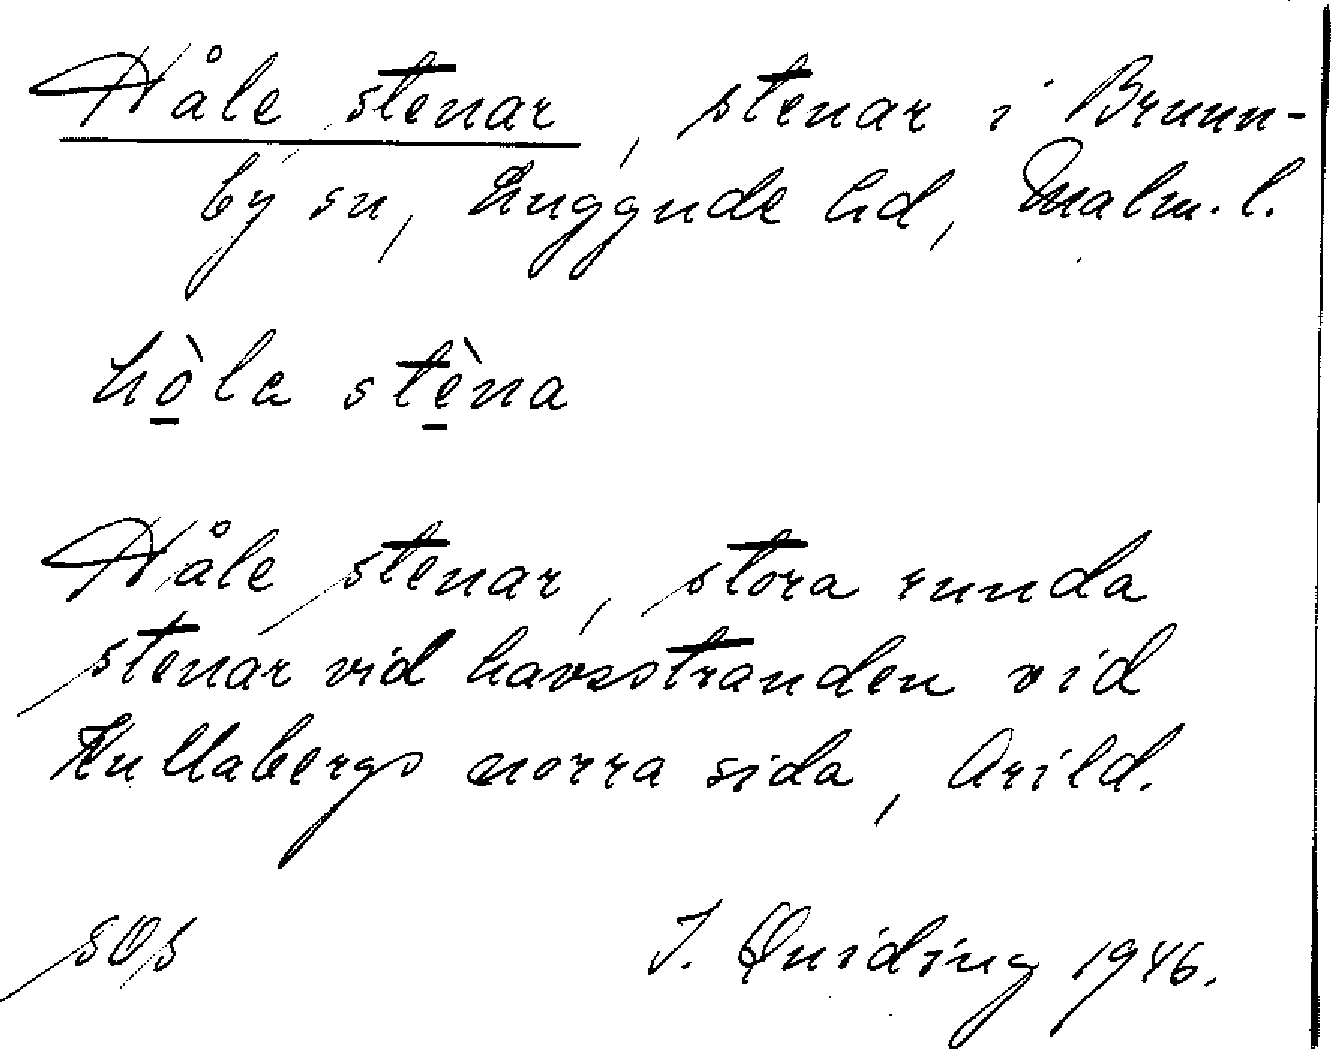 Håle stenar, stenar i Brunn-
by sn, Luggude hd, Malm. l.
hòla stèna
Håle stenar, stora runda
stenar vid havsstranden vid
Kullabergs norra sida, Arild.
J. Quiding 1946.